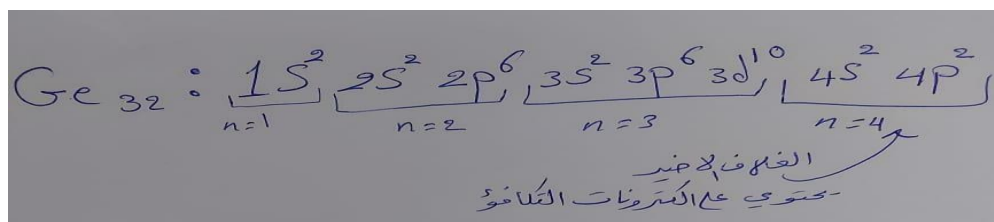 Ge₃₂ : 1S² 2S² 2p⁶ 3s² 3p⁶ 3d¹⁰ 4s² 4p²
n=1 n=2 n=3 n=4
الغلاف الاخير
يحتوي على الكترونات التكافؤ